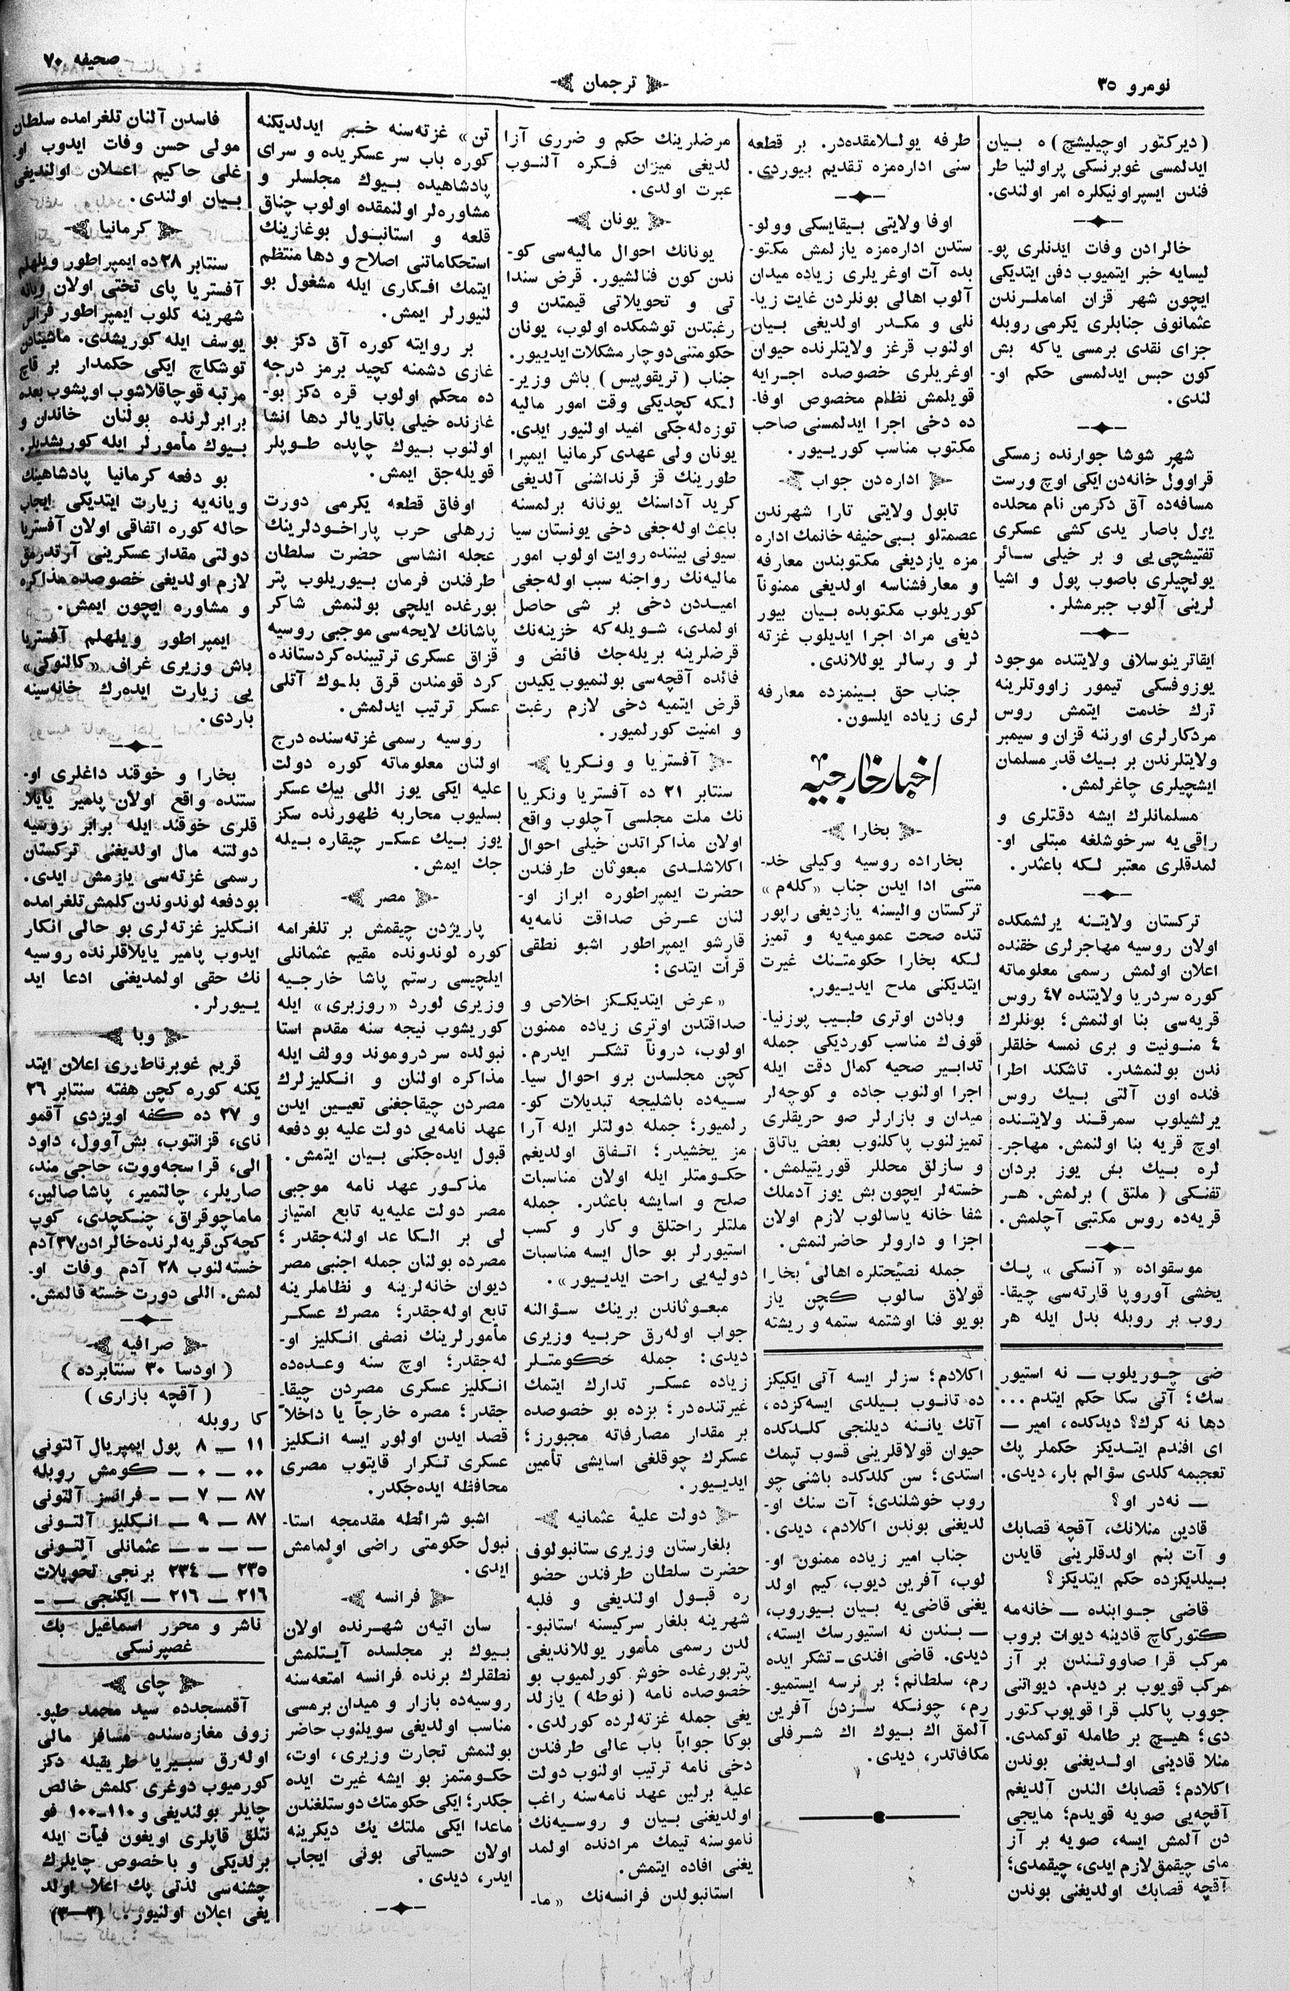 نومرو ٣٥
ترجمان
صحيفه ٧٠
( ديركتور اوچيليشچ ) ه بيان
ايدلمسى غوبرنسكى پراولنيا طر
فندن ايسپراونيكلره امر اولندى.
خالرادن وفات ايدنلرى پو-
ليسايه خبر ايتميوب دفن ايتديكى
ايچون شهر قزان اماملرندن
عثمانوف جنابلرى يكرمى روبله
جزاى نقدى برمسى ياكه بش
كون حبس ايدلمسى حكم او-
لندى.
شهر شوشا جوارنده زمسكى
قراوول خانه‌دن ايكى اوچ ورست
مسافه‌ده آق دكرمن نام محلده
يول باصار يدى كشى عسكرى
تفتيشچى‌يى و بر خيلى سائر
يولچيلرى باصوب پول و اشيا
لرينى آلوب جبرمشلر.
ايقاترينوسلاف ولايتنده موجود
يوزوفسكى تيمور زاووتلرينه
ترك خدمت ايتمش روس
مردكارلرى اورننه قزان و سيمبر
ولايتلرندن بر بيك قدر مسلمان
ايشچيلرى چاغرلمش.
مسلمانلرك ايشه دقتلرى و
راقى‌يه سرخوشلغه مبتلى او-
لمدقلرى معتبر لكه باعثدر.
تركستان ولايتنه يرلشمكده
اولان روسيه مهاجرلرى حقنده
اعلان اولمش رسمى معلوماته
كوره سردريا ولايتنده ٤٧ روس
قريه‌سى بنا اولنمش؛ بونلرك
٤ منونيت و برى نمسه خلقلر
ندن بولنمشدر. تاشكند اطرا
فنده اون آلتى بيك روس
يرلشيلوب سمرقند ولايتنده
اوچ قريه بنا اولنمش. مهاجر-
لره بيك بش يوز بردان
تفنكى ( ملتق ) برلمش. هر
قريه‌ده روس مكتبى آچلمش.
موسقواده « آنسكى » پك
يخشى آوروپا قارته‌سى چيقا-
روب بر روبله بدل ايله هر
طرفه يوللامقده‌در. بر قطعه
سنى اداره‌مزه تقديم بيوردى.
اوفا ولايتى بيقايسكى وولو-
ستدن اداره‌مزه يازلمش مكتو-
بده آت اوغريلرى زياده ميدان
آلوب اهالى بونلردن غايت زيا-
نلى و مكدر اولديغى بيان
اولنوب قرغز ولايتلرنده حيوان
اوغريلرى خصوصده اجرايه
قويلمش نظام مخصوص اوفا-
ده دخى اجرا ايدلمسنى صاحب
مكتوب مناسب كورييور.
اداره‌دن جواب
تابول ولايتى تارا شهرندن
عصمتلو بى‌بى حنيفه خانمك اداره
مزه يازديغى مكتوبندن معارفه
و معارفشناسه اولديغى ممنوناً
كوريلوب مكتوبده بيان بيور
ديغى مراد اجرا ايديلوب غزته
لر و رسالر يوللاندى.
جناب حق بينمزده معارفه
لرى زياده ايلسون.
اخبار خارجيه
بخارا
بخاراده روسيه وكيلى خد-
متنى ادا ايدن جناب « كله‌م »
تركستان واليسنه يازديغى راپور
تنده صحت عموميه‌يه و تميز
لكه بخارا حكومتنك غيرت
ايتديكنى مدح ايدييور.
وبادن اوترى طبيب پوزنيا-
قوف‌ك مناسب كورديكى جمله
تدابير صحيه كمال دقت ايله
اجرا اولنوب جاده و كوچه‌لر
ميدان و بازارلر صو حريقلرى
تميزلنوب پاكلنوب بعض ياتاق
و سازلق محللر قوريتيلمش.
خسته‌لر ايچون بش يوز آدملك
شفا خانه ياسالوب لازم اولان
اجزا و دارولر حاضرلنمش.
جمله نصيحتلره اهالىٔ بخارا
قولاق سالوب كچن ياز
بويو فنا اوشتمه ستمه و ريشته
مرضلرينك حكم و ضررى آزا
لديغى ميزان فكره آلنوب
عبرت اولدى.
يونان
يونانك احوال ماليه‌سى كو-
ندن كون فنالشيور. قرض سندا
تى و تحويلاتى قيمتدن و
رغبتدن توشمكده اولوب، يونان
حكومتنى دوچار مشكلات ايدييور.
جناب ( تريقوپيس ) باش وزير-
لكه كچديكى وقت امور ماليه
توزه‌له‌جكى اميد اولنيور ايدى.
يونان ولى عهدى كرمانيا ايمپرا
طورينك قز قرنداشنى آلديغى
كريد آداسنك يونانه برلمسنه
باعث اوله‌جغى دخى يونستان سيا
سيونى بيننده روايت اولوب امور
ماليه‌نك رواجنه سبب اوله‌جغى
اميددن دخى بر شى حاصل
اولمدى، شويله‌كه خزينه‌نك
قرضلرينه بريله‌جك فائض و
فائده آقچه‌سى بولنميوب يكيدن
قرض ايتميه دخى لازم رغبت
و امنيت كورلميور.
آفستريا و ونكريا
سنتابر ٢١ ده آفستريا ونكريا
نك ملت مجلسى آچلوب واقع
اولان مذاكراتدن خيلى احوال
اكلاشلدى مبعوثان طرفندن
حضرت ايمپراطوره ابراز او-
لنان عرض صداقت نامه‌يه
قارشو ايمپراطور اشبو نطقى
قرأت ايتدى:
« عرض ايتديككز اخلاص و
صداقتدن اوترى زياده ممنون
اولوب، دروناً تشكر ايدرم.
كچن مجلسدن برو احوال سيا-
سيه‌ده باشليجه تبديلات كو-
رلميور؛ جمله دولتلر ايله آرا
مز يخشيدر؛ اتفاق اولديغم
حكومتلر ايله اولان مناسبات
صلح و اسايشه باعثدر. جمله
ملتلر راحتلق و كار و كسب
استيورلر بو حال ايسه مناسبات
دوليه‌يى راحت ايدييور».
مبعوثاندن برينك سؤالنه
جواب اوله‌رق حربيه وزيرى
ديدى: جمله حكومتلر
زياده عسكر تدارك ايتمك
غيرتنده‌در؛ بزده بو خصوصده
بر مقدار مصارفاته مجبورز؛
عسكرك چوقلغى اسايشى تأمين
ايدييور.
دولت عليهٔ عثمانيه
بلغارستان وزيرى ستانبولوف
حضرت سلطان طرفندن حضو
ره قبول اولنديغى و فلبه
شهرينه بلغار سركيسنه استانبو-
لدن رسمى مأمور يوللانديغى
پتربورغده خوش كورلميوب بو
خصوصده نامه ( نوطه ) يازلد
يغى جمله غزته‌لرده كورلدى.
بوكا جواباً باب عالى طرفندن
دخى نامه ترتيب اولنوب دولت
عليهٔ برلين عهد نامه‌سنه راغب
اولديغنى بيان و روسيه‌نك
ناموسنه تيمك مرادنده اولمد
يغنى افاده ايتمش.
استانبولدن فرانسه‌نك « ما-
تن » غزته‌سنه خبر ايدلديكنه
كوره باب سر عسكريده و سراى
پادشاهيده بيوك مجلسلر و
مشاوره‌لر اولنمقده اولوب چناق
قلعه و استانبول بوغازينك
استحكاماتنى اصلاح و دها منتظم
ايتمك افكارى ايله مشغول بو
لنيورلر ايمش.
بر روايته كوره آق دكز بو
غازى دشمنه كچيد برمز درجه
ده محكم اولوب قره دكز بو-
غازنده خيلى باتاريالر دها انشا
اولنوب بيوك چاپده طوپلر
قويله‌جق ايمش.
اوفاق قطعه يكرمى دورت
زرهلى حرب پاراخودلرينك
عجله انشاسى حضرت سلطان
طرفندن فرمان بيوريلوب پتر
بورغده ايلچى بولنمش شاكر
پاشانك لايحه‌سى موجبى روسيه
قزاق عسكرى ترتيبنده كردستانده
كرد قومندن قرق بلوك آتلى
عسكر ترتيب ايدلمش.
روسيه رسمى غزته‌سنده درج
اولنان معلوماته كوره دولت
عليه ايكى يوز اللى بيك عسكر
بسليوب محاربه ظهورنده سكز
يوز بيك عسكر چيقاره بيله
جك ايمش.
مصر
پاريژدن چيقمش بر تلغرامه
كوره لوندونده مقيم عثمانلى
ايلچيسى رستم پاشا خارجيه
وزيرى لورد « روزبرى » ايله
كوريشوب نيجه سنه مقدم استا
نبولده سر دروموند وولف ايله
مذاكره اولنان و انكليزلرك
مصردن چيقاجغنى تعيين ايدن
عهد نامه‌يى دولت عليه بو دفعه
قبول ايده‌جكنى بيان ايتمش.
مذكور عهد نامه موجبى
مصر دولت عليه‌يه تابع امتياز
لى بر الكا عد اولنه‌جقدر؛
مصرده بولنان جمله اجنبى مصر
ديوان خانه‌لرينه و نظاملرينه
تابع اوله‌جقدر؛ مصرك عسكر
مأمورلرينك نصفى انكليز او-
له‌جقدر؛ اوچ سنه وعده‌ده
انكليز عسكرى مصردن چيقا-
جقدر؛ مصره خارجاً يا داخلاً
قصد ايدن اولور ايسه انكليز
عسكرى تكرار قايتوب مصرى
محافظه ايده‌جكدر.
اشبو شرائطه مقدمجه استا-
نبول حكومتى راضى اولمامش
ايدى.
فرانسه
سان اتيه‌ن شهرنده اولان
بيوك بر مجلسده آيتلمش
نطقلرك برنده فرانسه امتعه‌سنه
روسيه‌ده بازار و ميدان برمسى
مناسب اولديغى سويلنوب حاضر
بولنمش تجارت وزيرى، اوت،
حكومتمز بو ايشه غيرت ايده
جكدر؛ ايكى حكومتك دوستلغندن
ماعدا ايكى ملتك يك ديكرينه
اولان حسياتى بونى ايجاب
ايدر، ديدى.
فاسدن آلنان تلغرامده سلطان
مولى حسن وفات ايدوب او-
غلى حاكم اعلان اولنديغى
بيان اولندى.
كرمانيا
سنتابر ٢٨ ده ايمپراطور ويلهلم
آفستريا پاى تختى اولان ويانه
شهرينه كلوب ايمپراطور فرانس
يوسف ايله كوريشدى. ماشينادن
توشكاچ ايكى حكمدار بر قاچ
مرتبه قوچاقلاشوب اوپشوب بعده
برابرلرنده بولنان خاندان و
بيوك مأمورلر ايله كوريشديلر.
بو دفعه كرمانيا پادشاهينك
ويانه‌يه زيارت ايتديكى ايجاب
حاله كوره اتفاقى اولان آفستريا
دولتى مقدار عسكرينى آرتدرمق
لازم اولديغى خصوصده مذاكره
و مشاوره ايچون ايمش.
ايمپراطور ويلهلم آفستريا
باش وزيرى غراف «كالنوكى»
يى زيارت ايده‌رك خانه‌سينه
باردى.
بخارا و خوقند داغلرى او-
ستنده واقع اولان پامير يايلا
قلرى خوقند ايله برابر روسيه
دولتنه مال اولديغنى تركستان
رسمى غزته‌سى يازمش ايدى.
بو دفعه لوندوندن كلمش تلغرامده
انكليز غزته‌لرى بو حالى انكار
ايدوب پامير يايلاقلرنده روسيه
نك حقى اولمديغنى ادعا ايد
ييورلر.
وبا
قريم غوبرناطورى اعلان ايتد
يكنه كوره كچن هفته سنتابر ٢٦
و ٢٧ ده كفه اويزدى آقمو
ناى، قزانتوب، بش‌آوول، داود
الى، قراسجه‌ووت، حاجى مند،
صاريلر، جالتمير، پاشا صالين،
ماماچوقراق، جنكچدى، كوپ
كچه‌كن قريه‌لرنده خالرادن ٣٧ آدم
خسته‌لنوب ٢٨ آدم وفات او-
لمش. اللى دورت خسته قالمش.
صرافيه
( اودسا ٣٠ سنتابرده )
( آقچه بازارى )
كا روبله
١١ — ٨ پول ايمپريال آلتونى
٠٠ — ٠ — كومش روبله
٨٧ — ٧ — - فرانسز آلتونى
٨٧ — ٩ — انكليز آلتونى
— — - — عثمانلى آلتونى
٢٣٥ — ٢٣٤ برنجى تحويلات
٢١٦ — ٢١٦ — ايكنجى — -
ناشر و محرر اسماعيل بك
غصپرنسكى
چاى
آقمسجدده سيد محمد طپو-
زوف مغازه‌سنده مسافر مالى
اوله‌رق سبيريا طريقيله دكز
كورميوب دوغرى كلمش خالص
چايلر بولنديغى و ١١٠-١٠٠ فو
نتلق قاپلرى اويغون فيآت ايله
برلديكى و با خصوص چايلرك
چشنه‌سى لذتى پك اعلا اولد
يغى اعلان اولنيور. (٣—٣)
ضى چوريلوب — نه استيور
سك؛ آتى سكا حكم ايتدم...
دها نه كرك؟ ديدكده، امير —
اى افندم ايتديكز حكملر پك
تعجبمه كلدى سؤالم بار، ديدى.
— نه‌در او؟
قادين منلانك، آقچه قصابك
و آت بنم اولدقلرينى قايدن
بيلديكزده حكم ايتديكز؟
قاضى جوابنده — خانه‌مه
كتوركاچ قادينه ديوات بروب
مركب قرا صاووتندن بر آز
مركب قويوب بر ديدم. ديواتنى
جووب پاكلب قرا قويوب كتور
دى؛ هيچ بر طامله توكمدى.
منلا قادينى اولديغنى بوندن
اكلادم؛ قصابك الندن آلديغم
آقچه‌يى صويه قويدم؛ مايجى
دن آلمش ايسه، صويه بر آز
ماى چيقمق لازم ايدى، چيقمدى؛
آقچه قصابك اولديغنى بوندن
اكلادم؛ سزلر ايسه آتى ايكيكز
ده تانوب بيلدى ايسه‌كزده،
آتك ياننه ديلنجى كلدكده
حيوان قولاقلرينى قسوب تيمك
استدى؛ سن كلدكده باشنى چو
روب خوشلندى؛ آت سنك او-
لديغنى بوندن اكلادم، ديدى.
جناب امير زياده ممنون او-
لوب، آفرين ديوب، كيم اولد
يغنى قاضى‌يه بيان بيوروب،
— بندن نه استيورسك ايسته،
ديدى. قاضى افندى - تشكر ايده
رم، سلطانم؛ بر نرسه ايستميو-
رم، چونكه سزدن آفرين
آلمق اك بيوك اك شرفلى
مكافاتدر، ديدى.